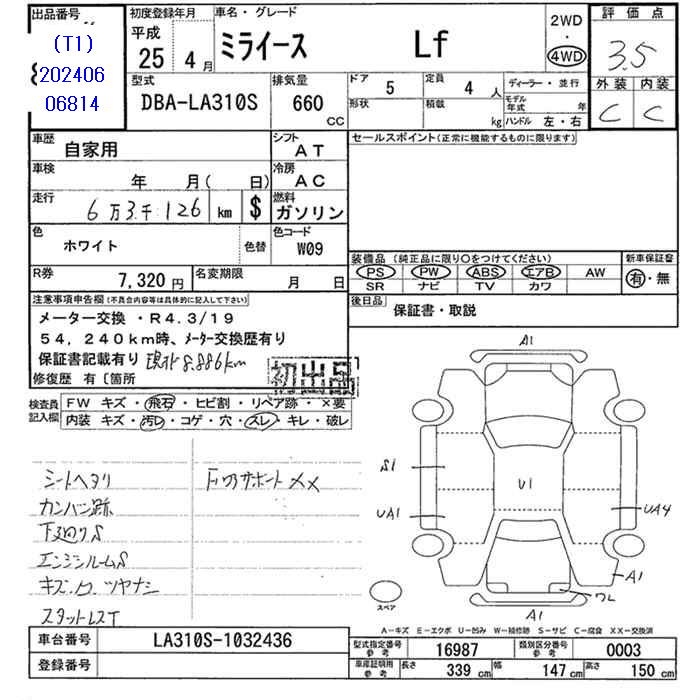 出品番号
(T1)
202406
06814
初度登録年月
平成
25年 4月
車名・グレード
ミライース Lf
2WD
・
4WD
評価点
3.5
外装 内装
C C
型式
DBA-LA310S
排気量
660
CC
ドア 5
定員 4人
形状
積載 kg
ディーラー・並行
モデル年式 年
ハンドル 左・右
車歴
自家用
シフト
AT
セールスポイント(正常に機能するものに限ります)
車検
年 月( 日)
冷房
AC
走行
6万3千126 km $
燃料
ガソリン
色
ホワイト
色替
色コード
W09
装備品(純正品に限り○をつけてください)
新車保証書
PS PW ABS エアB AW
SR ナビ TV カワ
有・無
R券
7,320円
名変期限
月 日
後日品
保証書・取説
注意事項申告欄(不具合内容等は具体的に記入して下さい)
メーター交換・R4.3/19
54,240km時、メーター交換歴有り
保証書記載有り 現在8.886km
初出品
修復歴 有〔箇所
検査員
記入欄
FW キズ・飛石・ヒビ割・リペア跡・×要
内装 キズ・汚レ・コゲ・穴・スレ・キレ・破レ
シートヘタリ
カンバン跡
下廻りS
エンジンルームS
キズ、ワ、ツヤナシ
スタットレスT
FロアサポートXX
A1
S1
U1
UA1
UA4
A1
ワレ
A1
スペア
A-キズ E-エクボ U-凹み W-補修跡 S-サビ C-腐食 XX-交換済
車台番号
LA310S-1032436
登録番号
型式指定番号
参考
16987
類別区分番号
参考
0003
車庫証明用
参考
長さ 339cm
幅 147cm
高さ 150cm